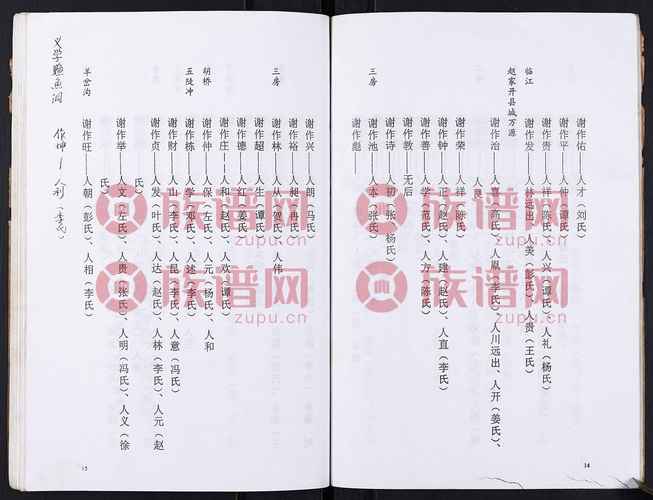 谢作佑——人才（刘氏）
谢作平——人仲（谭氏）
谢作贵——人祥（陈氏）、人兴（谭氏）、人礼（杨氏）
临江
谢作发——人林远出、人美（彭氏）、人贵（王氏）
赵家开县城万源
谢作治——人喜（高氏）、人胤（李氏）、人川远出、人开（姜氏）、
人
谢作荣——人祥（陈氏）
谢作钟——人正（赵氏）、人建（赵氏）、人直（李氏）
谢作善——人学（范氏）、人方（陈氏）
谢作教 无后
谢作诗——人初（张、杨氏）
谢作池——人本（张氏）
三房
谢作彪——
14
谢作兴——人朗（马氏）
谢作裕——人昶（冉氏）
三房
谢作林——人从（贺氏）、人伟
谢作超——人生（谭氏）
谢作德——人红（姜氏）
谢作庄——人和（赵氏）、人欢（谭氏）
胡桥
谢作仲——人保（左氏）、人元（杨氏）、人和
五陡冲
谢作栋——人学（邓氏）、人述（李氏）
谢作财——人山（李氏）、人昆（李氏）、人意（冯氏）
谢作贞——人发（叶氏）、人达（赵氏）、人林（李氏）、人元（赵
氏）
谢作举——人文（左氏）、人贵（张氏）、人明（冯氏）、人义（徐
氏）
羊岔沟
谢作旺——人朝（彭氏）、人相（李氏）
作坤——人利（李氏）
15
族谱网
zupu.cn
族谱网
zupu.cn
族谱网
zupu.cn
族谱网
zupu.cn